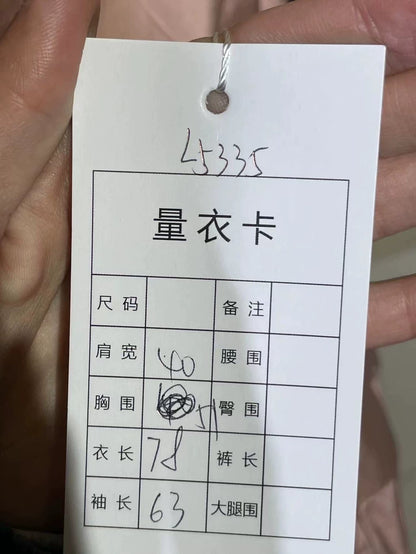 L5335
量衣卡
尺码 备注
肩宽 40 腰围
胸围 51 臀围
衣长 78 裤长
袖长 63 大腿围